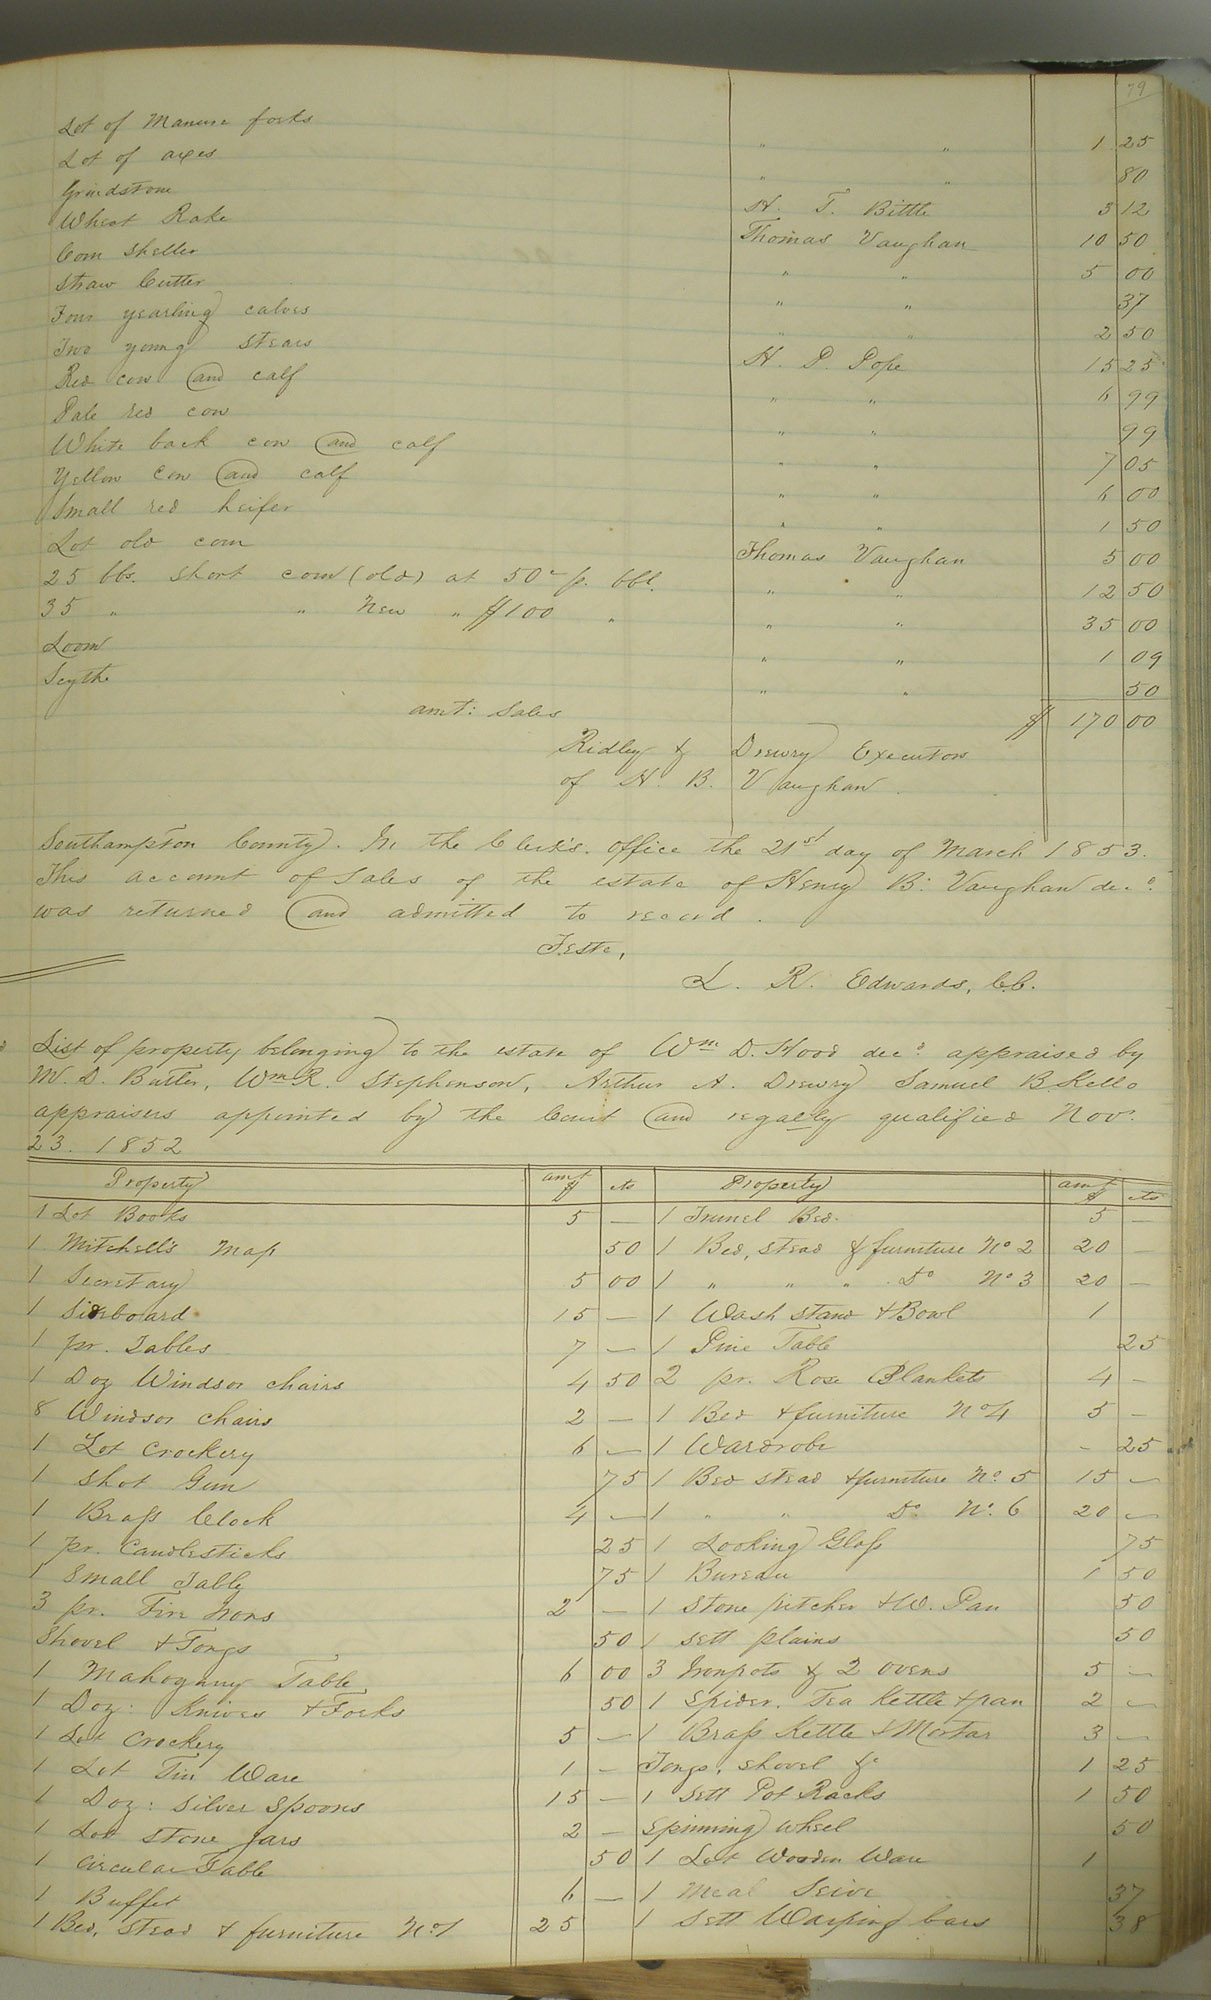 79
Lot of Manure forks " " 1 25
Lot of axes " " 80
Grindstone H. T. Bittle 3 12
Wheat Rake Thomas Vaughan 10 50
Corn Sheller " " 5 00
Straw Cutter " " 37
Four yearling calves " " 2 50
Two young stears H. P. Pope 15 25
Red cow and calf " " 6 99
Pale red cow " " 99
White back cow and calf " " 7 05
Yellow Cow and calf " " 6 00
Small red heifer " " 1 50
Lot old corn Thomas Vaughan 5 00
25 bbs. short corn (old) at 50c p. bbl. " " 12 50
35 " " New " $1 00 " " " 35 00
Loom " " 1 09
Scythe " " 50
amt: Sales $ 170 00
Ridley & Drewry Executors
of H. B. Vaughan.
Southampton County. In the Clerk's office the 21st day of March 1853.
This account of Sales of the estate of Henry B. Vaughan decd.
was returned and admitted to record.
Teste,
L. R. Edwards, C.C.
List of property belonging to the estate of Wm D. Hood decd. appraised by
W. D. Butler, Wm R. Stephenson, Arthur A. Drewry Samuel B Kello
appraisers appointed by the Court and regally qualified Nov.
23. 1852
Property amt $ cts Property amt $ cts
1 Lot Books 5 — 1 Trunel Bed. 5 —
1 Mitchell's Map 50 1 Bed, stead & furniture No 2 20 —
1 Secretary 5 00 1 " " " Do No 3 20 —
1 Sideboard 15 — 1 Wash stand & Bowl 1
1 pr. Tables 7 — 1 Pine Table 25
1 Doz Windsor chairs 4 50 2 pr. Rose Blankets 4 —
8 Windsor chairs 2 — 1 Bed & furniture No 4 5 —
1 Lot Crockery 6 — 1 Wardrobe - 25
1 Shot Gun 75 1 Bed stead & furniture No. 5 15 —
1 Brass Clock 4 — 1 " " Do. No. 6 20 —
1 pr. Candlesticks 25 1 Looking Glass 75
1 Small Table 75 1 Bureau 1 50
3 pr. Fire Irons 2 — 1 Stone pitcher & W. Pan 50
Shovel & Tongs 50 1 sett plains 50
1 Mahogany Table 6 00 3 Ironpots & 2 ovens 5 —
1 Doz: Knives & Forks 50 1 Spider. Tea Kettle & pan 2 —
1 Lot Crockery 5 — 1 Brass Kettle & Mortar 3 —
1 Lot Tin Ware 1 — Tongs, Shovel &c 1 25
1 Doz: Silver Spoons 15 — 1 Sett Pot Racks 1 50
1 Lot Stone Jars 2 — Spinning wheel 50
1 Circular Table 50 1 Lot Wooden Ware 1
1 Buffet 6 — 1 Meal Seive 37
1 Bed, Stead & furniture No 1 25 1 Sett Warping bars 38